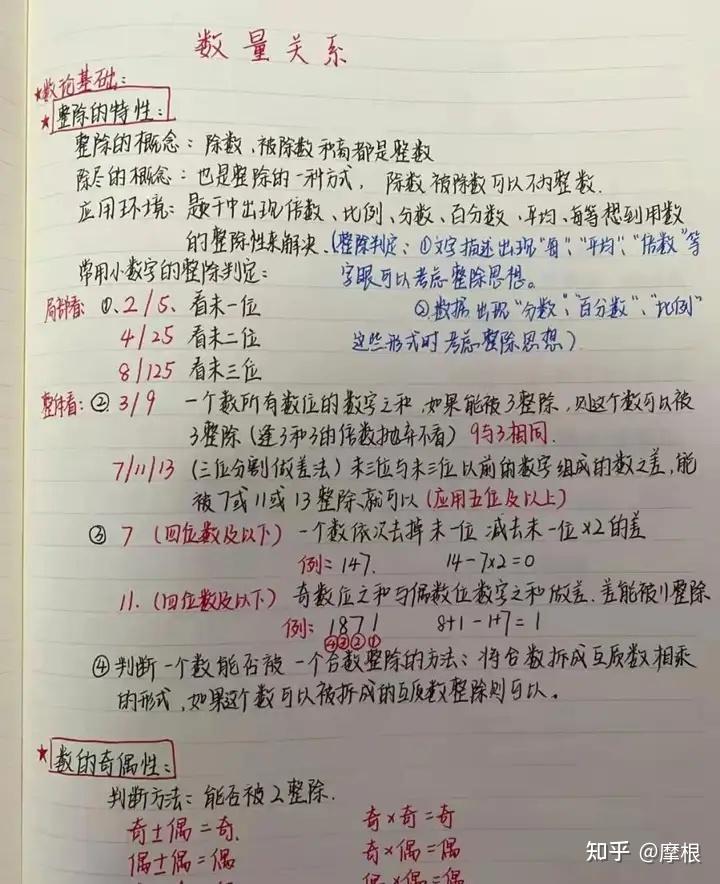 数量关系
★数论基础:
★整除的特性:
整除的概念:除数、被除数和商都是整数
除尽的概念:也是整除的一种方式,除数被除数可以不为整数.
应用环境:题干中出现倍数、比例、分数、百分数、平均、每等想到用数
的整除性来解决.(整除判定:①文字描述出现"每"、"平均"、"倍数"等
常用小数字的整除判定: 字眼可以考虑整除思想。
局部看:①、2/5、看末一位 ②数据出现"分数"、"百分数"、"比例"
4/25 看末二位 这些形式时考虑整除思想)
8/125 看末三位
整体看:②3/9 一个数所有数位的数字之和,如果能被3整除,则这个数可以被
3整除(逢3和3的倍数抛弃不看)9与3相同.
7/11/13(三位分割做差法)末三位与末三位以前的数字组成的数之差,能
被7或11或13整除就可以(应用五位及以上)
③ 7(四位数及以下)一个数依次去掉末一位 减去末一位×2的差
例:147. 14-7×2=0
11.(四位数及以下)奇数位之和与偶数位数字之和做差.差能被11整除
例:1871 8+1-1+7=1
④③②①
④判断一个数能否被一个合数整除的方法:将合数拆成互质数相乘
的形式,如果这个数可以被拆成的互质数整除则可以。
★数的奇偶性:
判断方法:能否被2整除.
奇±偶=奇. 奇×奇=奇
偶±偶=偶 奇×偶=偶
偶×偶=偶
知乎 @摩根